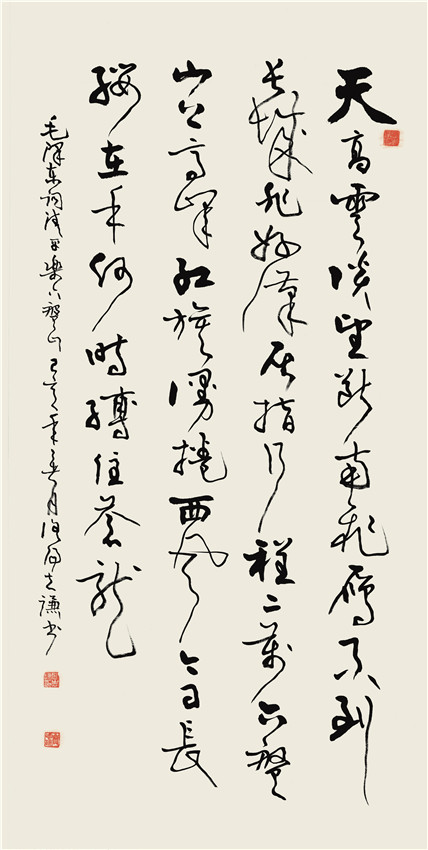 天高雲淡望斷南飛雁不到
長城非好漢屈指行程二萬六盤
山上高峰紅旗漫捲西風今日長
纓在手何時縛住蒼龍
毛澤東詞清平樂六盤山己亥年春月志謙書